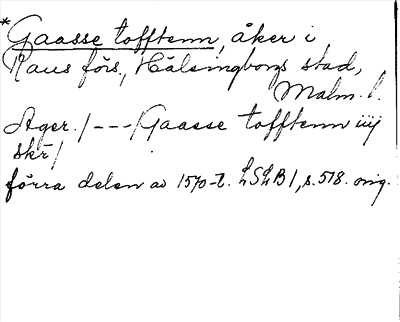 *Gaasse tofftenn, åker i
Raus förs., Hälsingborgs stad,
Malm. l.
Ager. /---/ Gaasse tofftenn iiij
skr/
förra delen av 1570-t. LSLB 1, s. 518. orig.